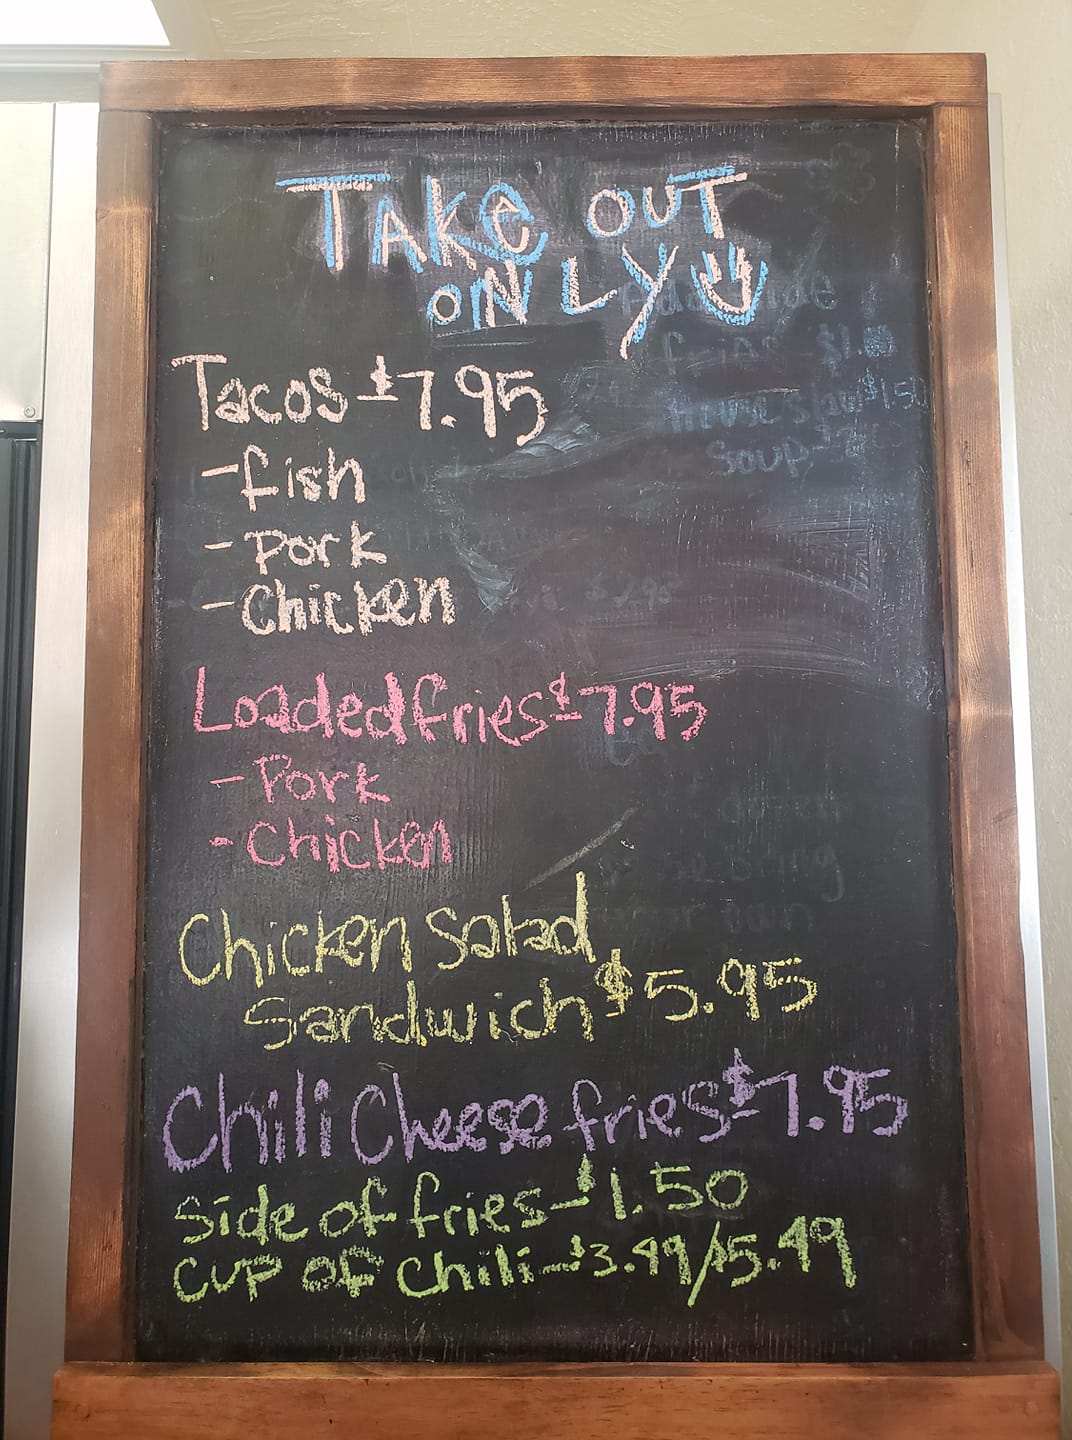 TAKE OUT
ONLY
Tacos - $7.95
- fish
- Pork
- Chicken
Loaded fries $7.95
- Pork
- Chicken
Chicken Salad
Sandwich $5.95
Chili Cheese fries $7.95
Side of fries - $1.50
CUP OF Chili - $3.49/$5.49
Soup